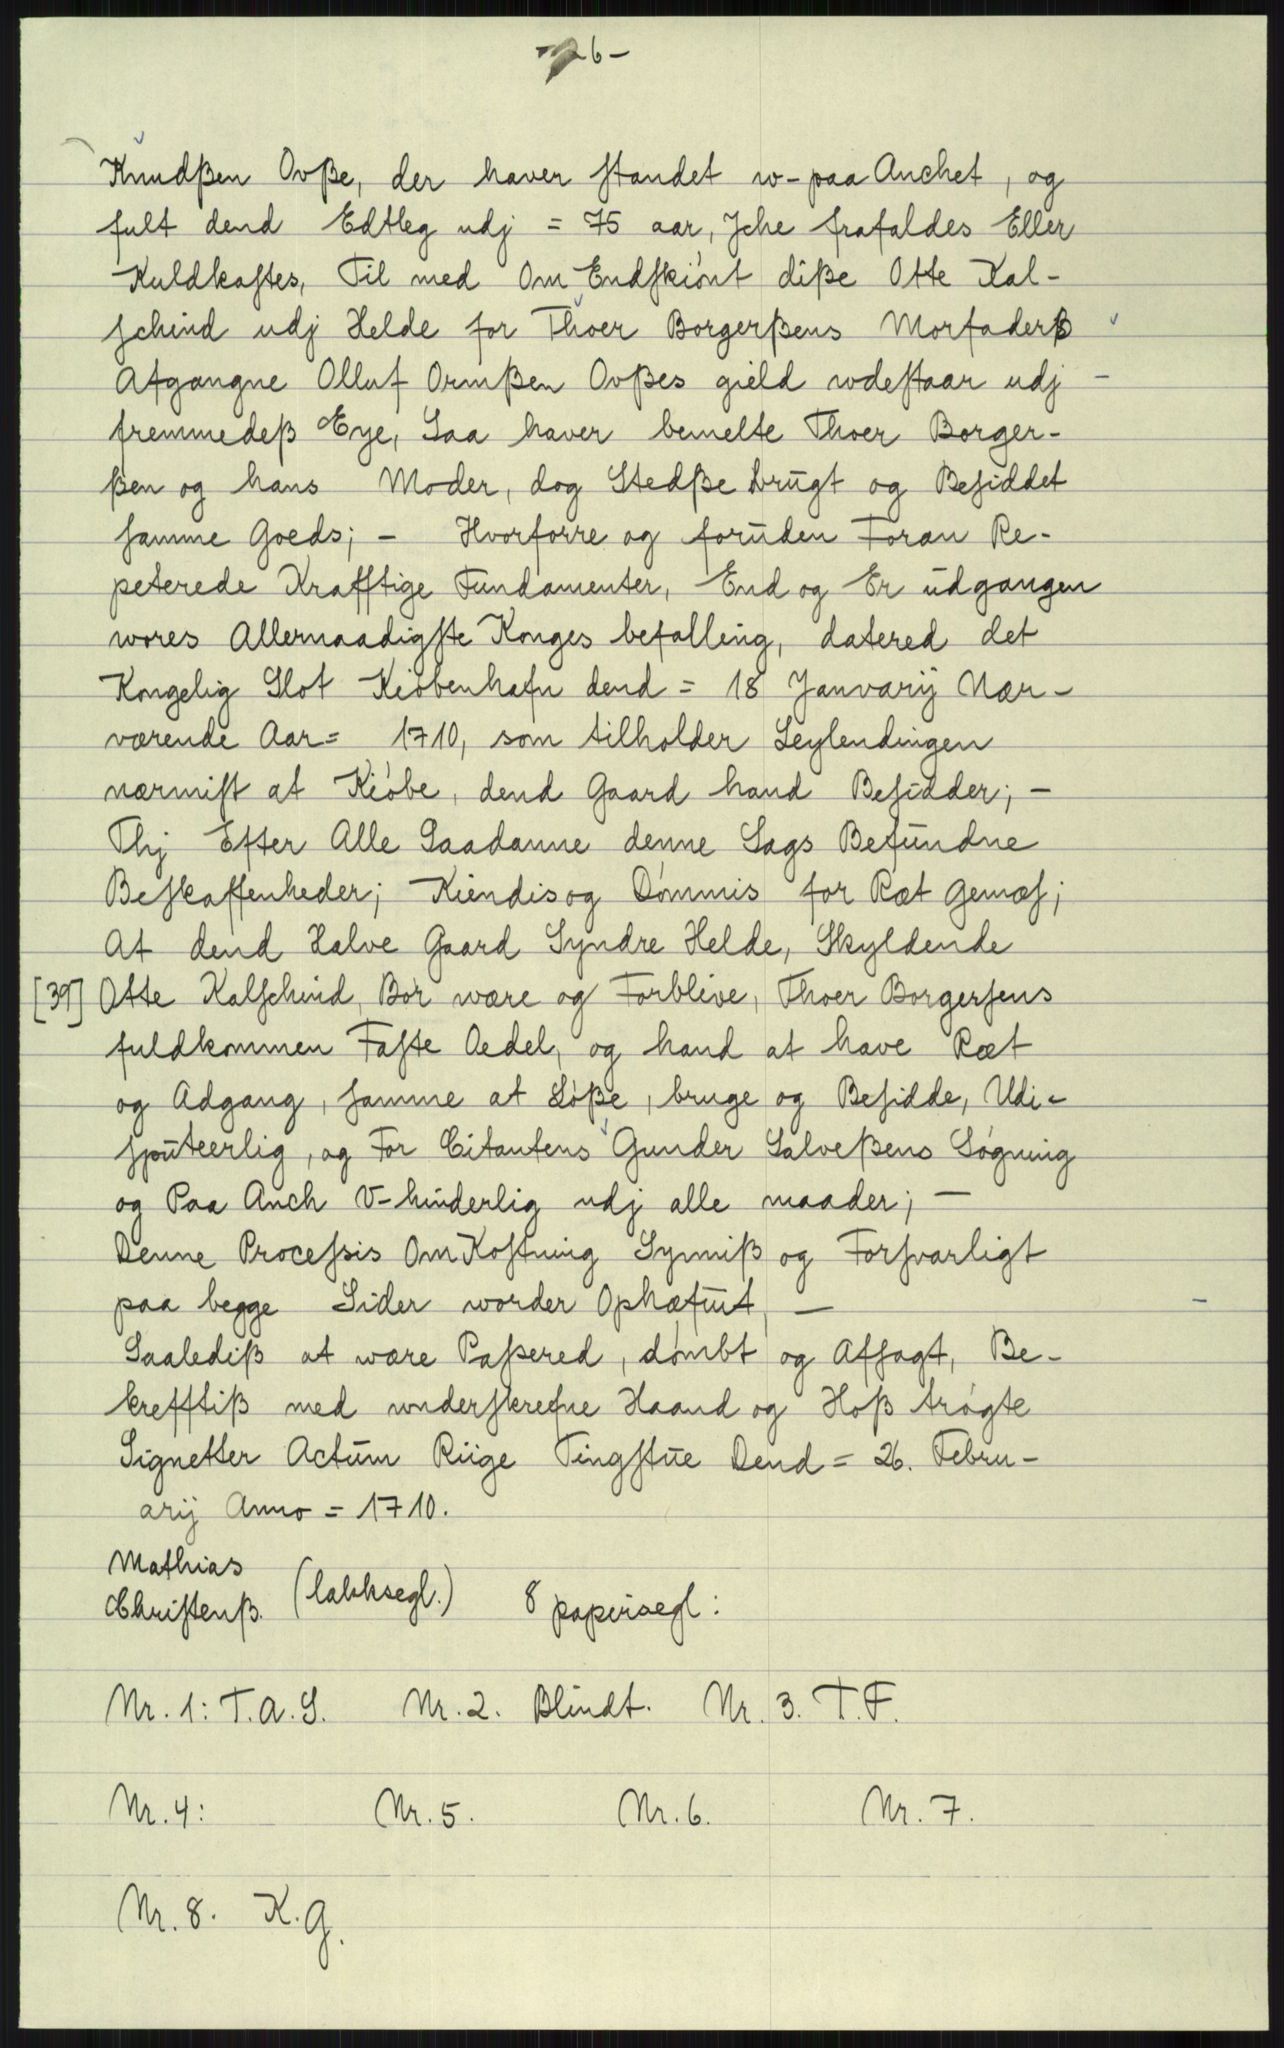 -26-
Knudßen Ovße, der haver standet w-paa Anchet, og
fult dend Edtleg udj = 75 aar, Jche frafaldes Eller
Kuldkastes, Til med Om Endskiönt diße Otte Kal-
schind udj Helde for Thoer Borgerßens Morfaderß
Afgangne Olluf Ormßen Ovßes gield wdestaar udj
fremmedeß Eye, Saa haver bemelte Thoer Borger-
ßen og hans Moder, dog Stedße brugt og Besiddet
samme Goeds; - Hvorforre og foruden Foran Re-
peterede Krafftige Fundamenter, End og Er udgangen
wores Allernaadigste Konges befalling, datered det
Kongelig Slot Kiöbenhafn dend = 18 Janvarij Nær-
værende Aar= 1710, som tilholder Leylendingen
nærmist at Kiöbe, dend Gaard hand Besidder; -
Thj Efter Alle Saadanne denne Sags Befundne
Beskaffenheder; Kiendis og Dömmis for Ræt Gemæs;
At dend Halve Gaard Syndre Helde, Skyldende
[39] Otte Kalschind, Bör wære og Forblive, Thoer Borgersens
fuldkommen Faste Oedel, og hand at have Ræt
og Adgang, samme at Löße, bruge og Besidde, Udi-
sputeerlig, og For Citantens Gunder Salveßens Sögning
og Paa Anch V-hinderlig udj alle maader; -
Denne Processis Om Kostning Synniß og Forsvarligt
paa begge Sider worder Ophæfuit, -
Saalediß at wære Paßered, dömbt og Afsagt, Be-
krefftiß med underskrefne Haand og Hoß trögte
Signetter Actum Riige Tingstue Dend = 26. Febru-
arij Anno = 1710.
Mathias
Christenß. (lakksegl.) 8 papirsegl:
Nr. 1: T.A.S. Nr. 2. Blindt. Nr. 3. T.F.
Nr. 4: Nr. 5. Nr. 6. Nr. 7.
Nr. 8. K.G.